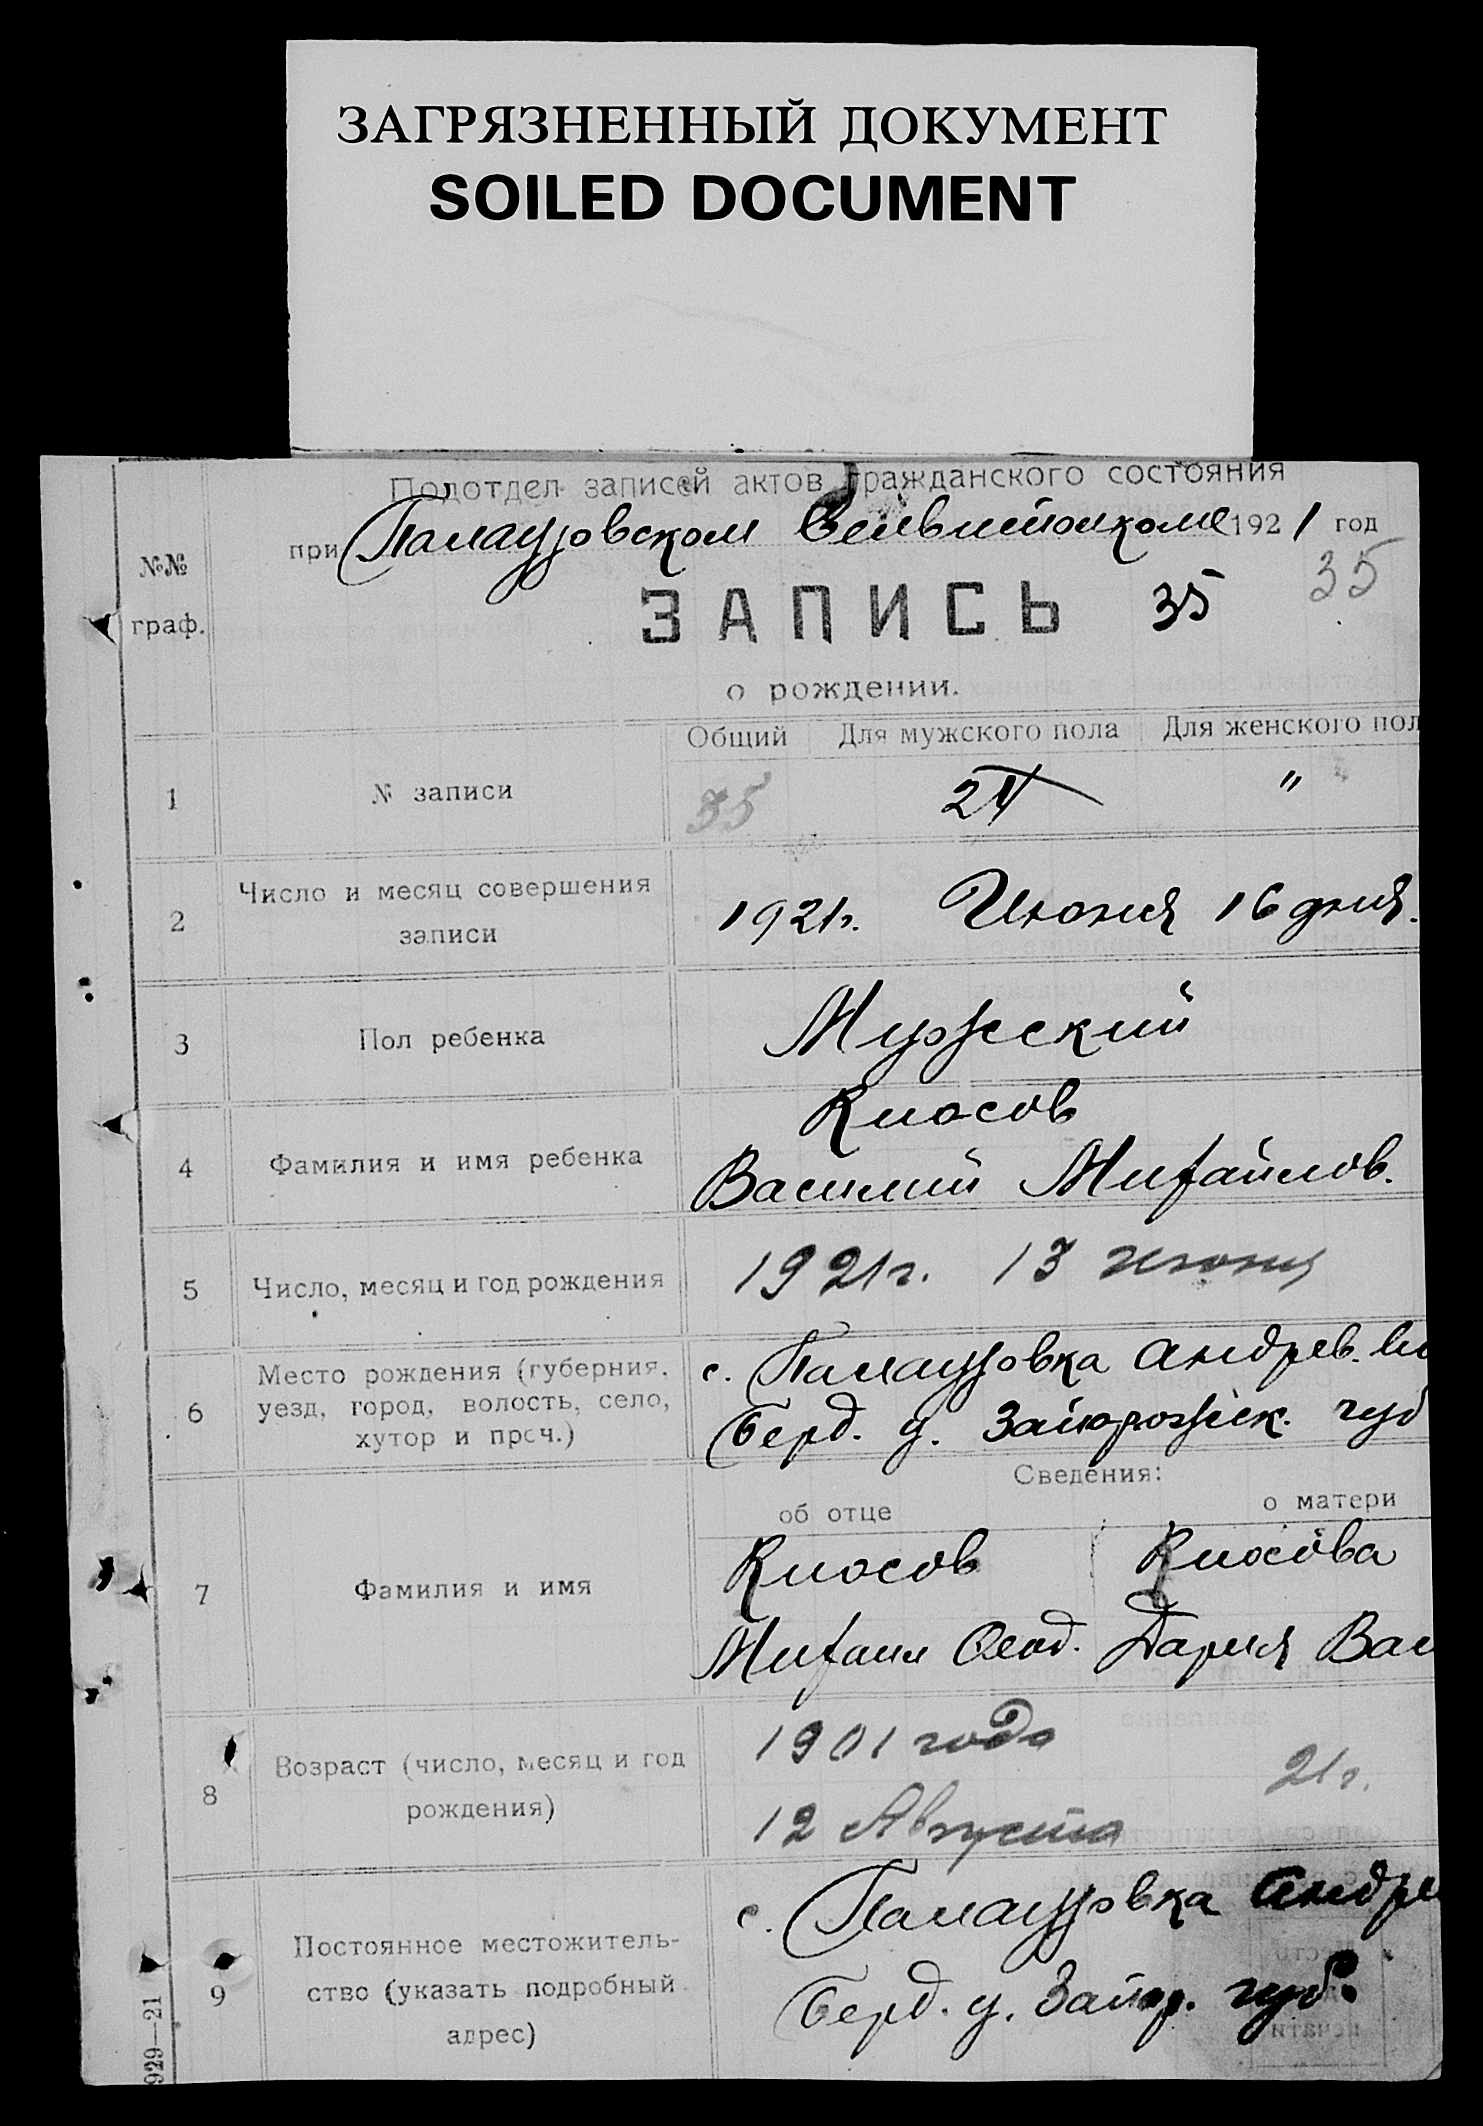 ЗАГРЯЗНЕННЫЙ ДОКУМЕНТ
SOILED DOCUMENT
Подотдел записей актов гражданского состояния
при Палаузовском 1921 год
№№ граф.
35
ЗАПИСЬ 35
о рождении.
Общий Для мужского пола Для женского пол
1 № записи 35 "
2 Число и месяц совершения записи 1921г. Июня 16 дня.
3 Пол ребенка Мужеский
4 Фамилия и имя ребенка Киосов
Василий Михайлов.
5 Число, месяц и год рождения 1921г. 13 июня
6 Место рождения (губерния, уезд, город, волость, село, хутор и проч.) с. Палаузовка Андрев. Во
Берд. у. Запорожск. губ
Сведения:
об отце о матери
7 Фамилия и имя Киосов Киосова
Михаил Феод. Дария Вас
8 Возраст (число, месяц и год рождения) 1901 года
21г.
12 Августа
9 Постоянное местожительство (указать подробный адрес) с. Палаузовка Андре
Берд. у. Запор. губ.
929—21